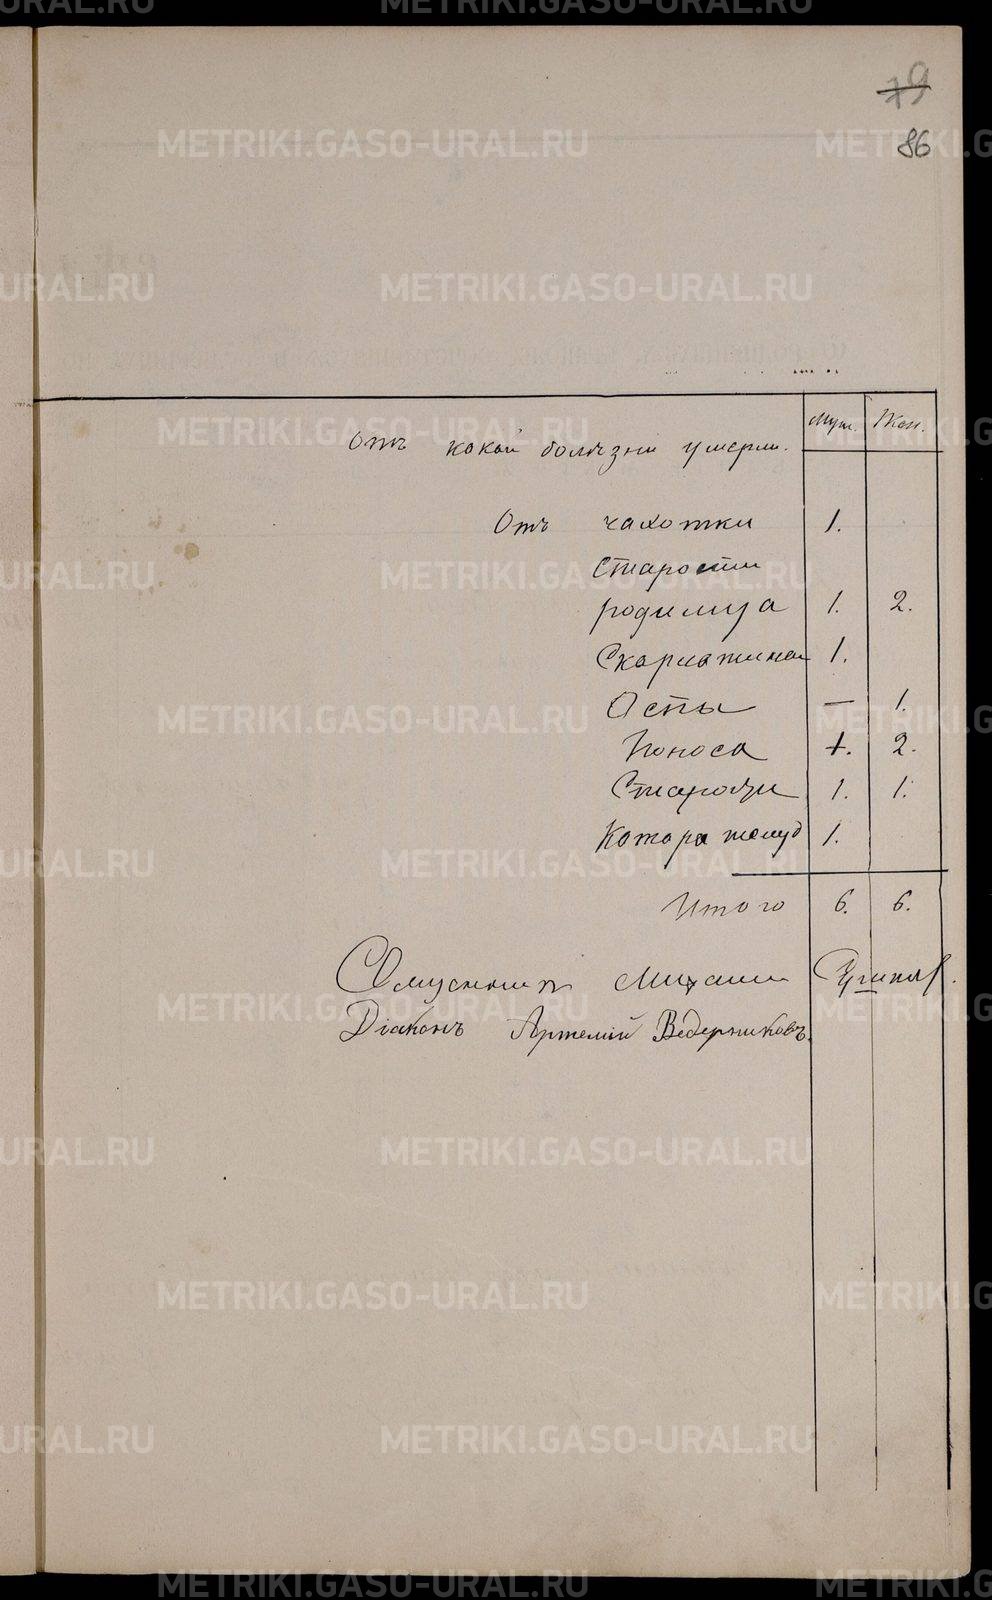 METRIKI.GASO-URAL.RU
79
86
Отъ какой болѣзни умерли. Муж. Жен.
Отъ чахотки 1.
Старости
родимца 1. 2.
Скарлатиной 1.
Оспы — 1.
Поноса 1. 2.
Старости 1. 1.
Катара желуд 1.
Итого 6. 6.
Священникъ Михаилъ
Діаконъ Артемій Ведерниковъ.